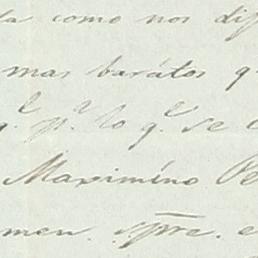 la como nos dif
mas barátos q
q.e p.a lo q.e se
Maximíno Be
men. spre. e